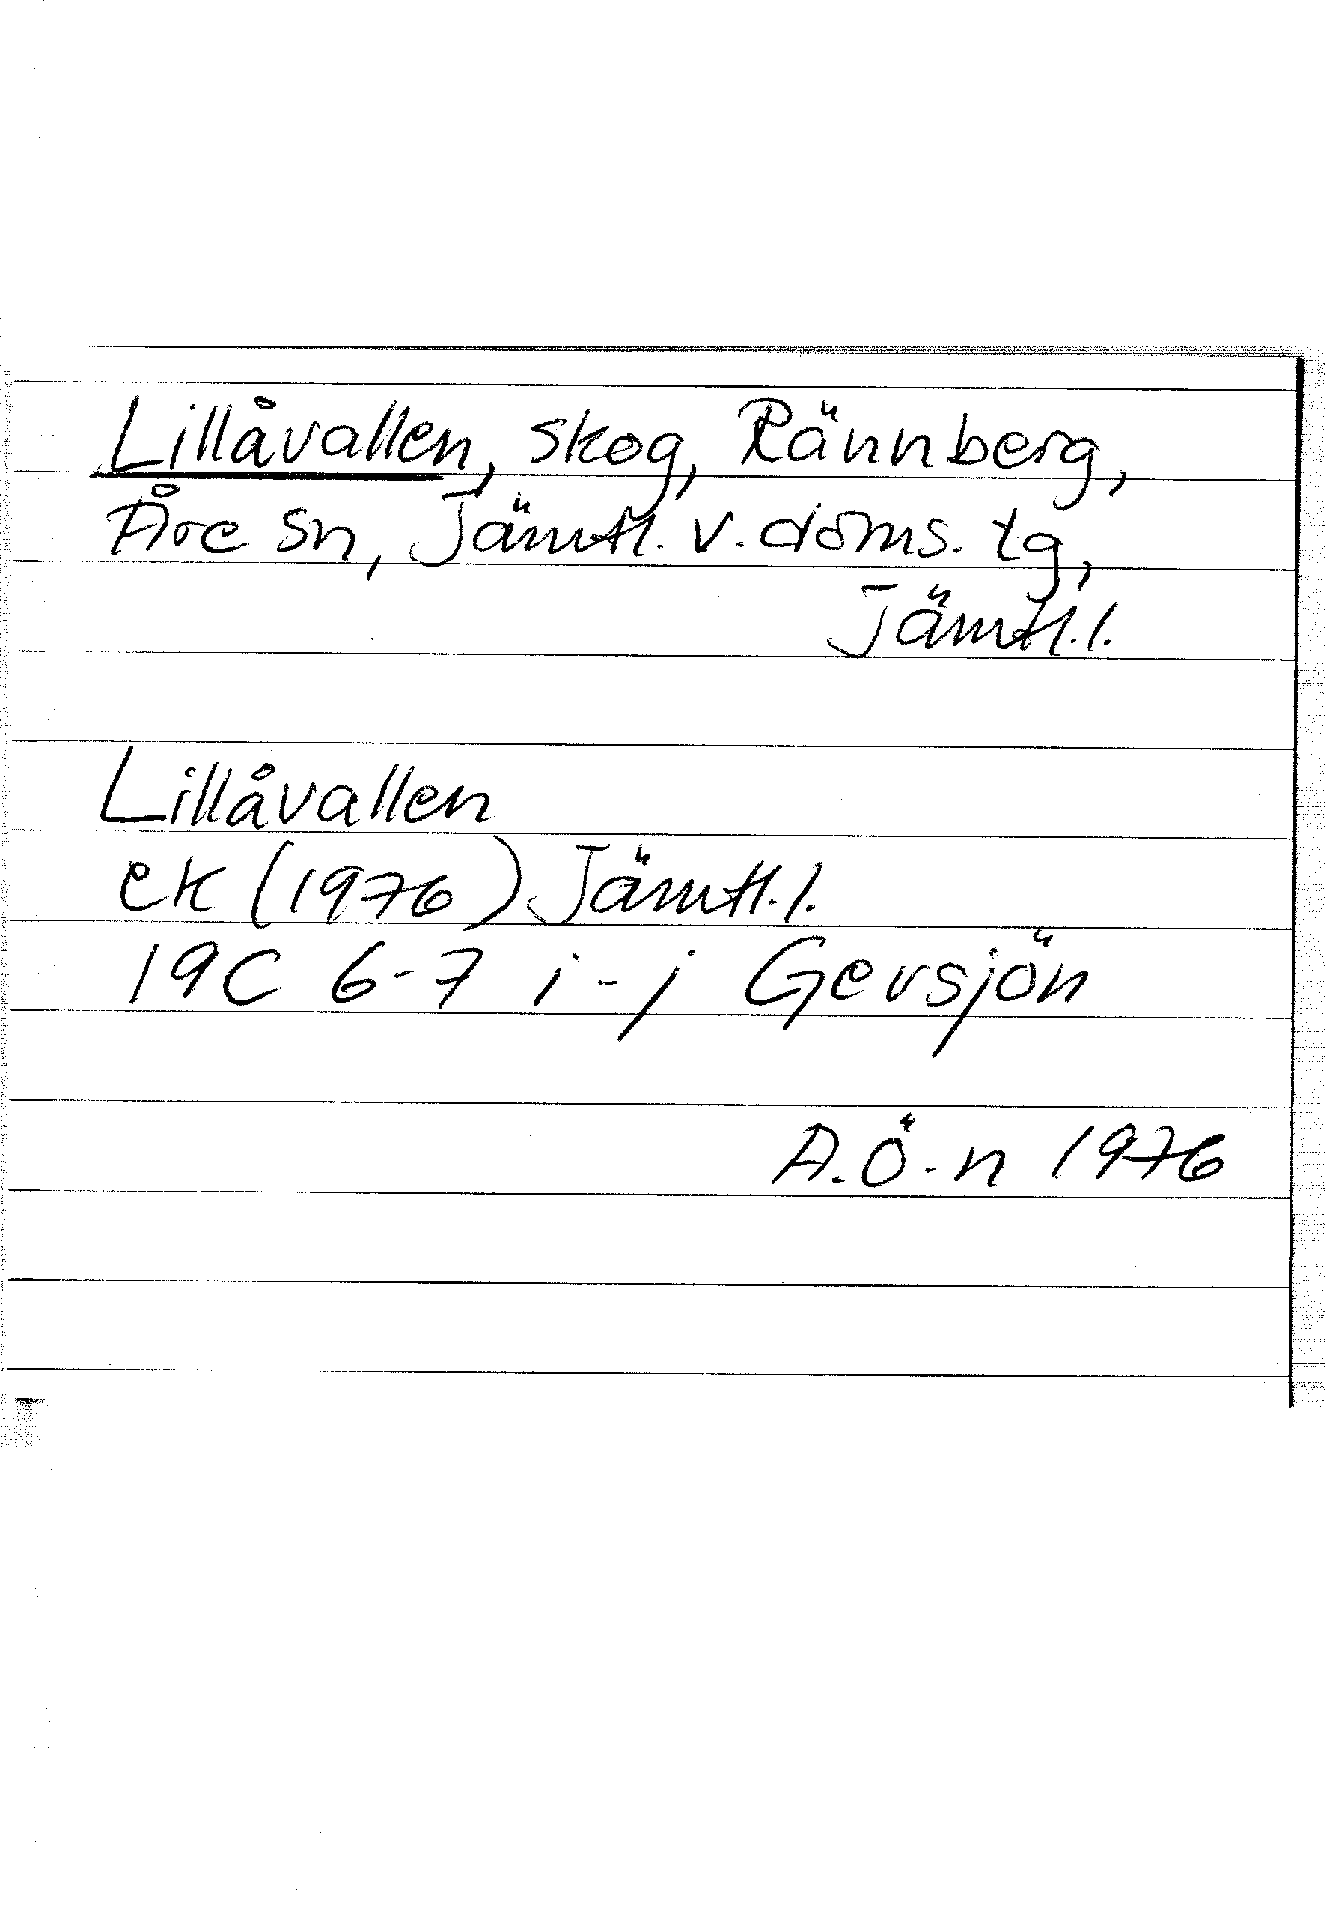 Lillåvallen, skog, Rännberg,
Åre sn, Jämtl. v. doms. tg,
Jämtl. l.
Lillåvallen
ek (1976) Jämtl. l.
19C 6-7 i-j Gevsjön
A.Ö-n 1976